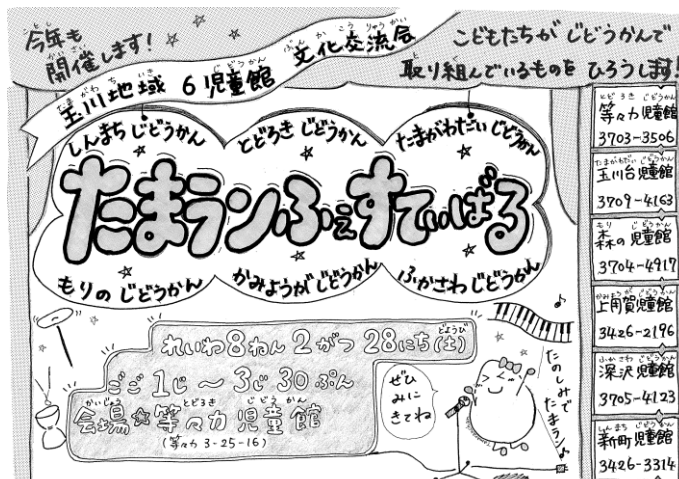 今年も
開催します!
玉川地域 6児童館 文化交流会
こどもたちが じどうかんで
取り組んでいるものを ひろうします!
しんまちじどうかん とどろきじどうかん たまがわだいじどうかん
たまランふぇすてぃばる
もりのじどうかん かみようがじどうかん ふかさわじどうかん
れいわ8ねん 2がつ 28にち(土)
ごご 1じ~3じ30ぷん
会場☆等々力児童館
(等々力 3-25-16)
ぜひ
みに
きてね
たのしみで
たまラン♪
等々力児童館
3703-3506
玉川台児童館
3709-4163
森の児童館
3704-4917
上用賀児童館
3426-2196
深沢児童館
3705-4123
新町児童館
3426-3314